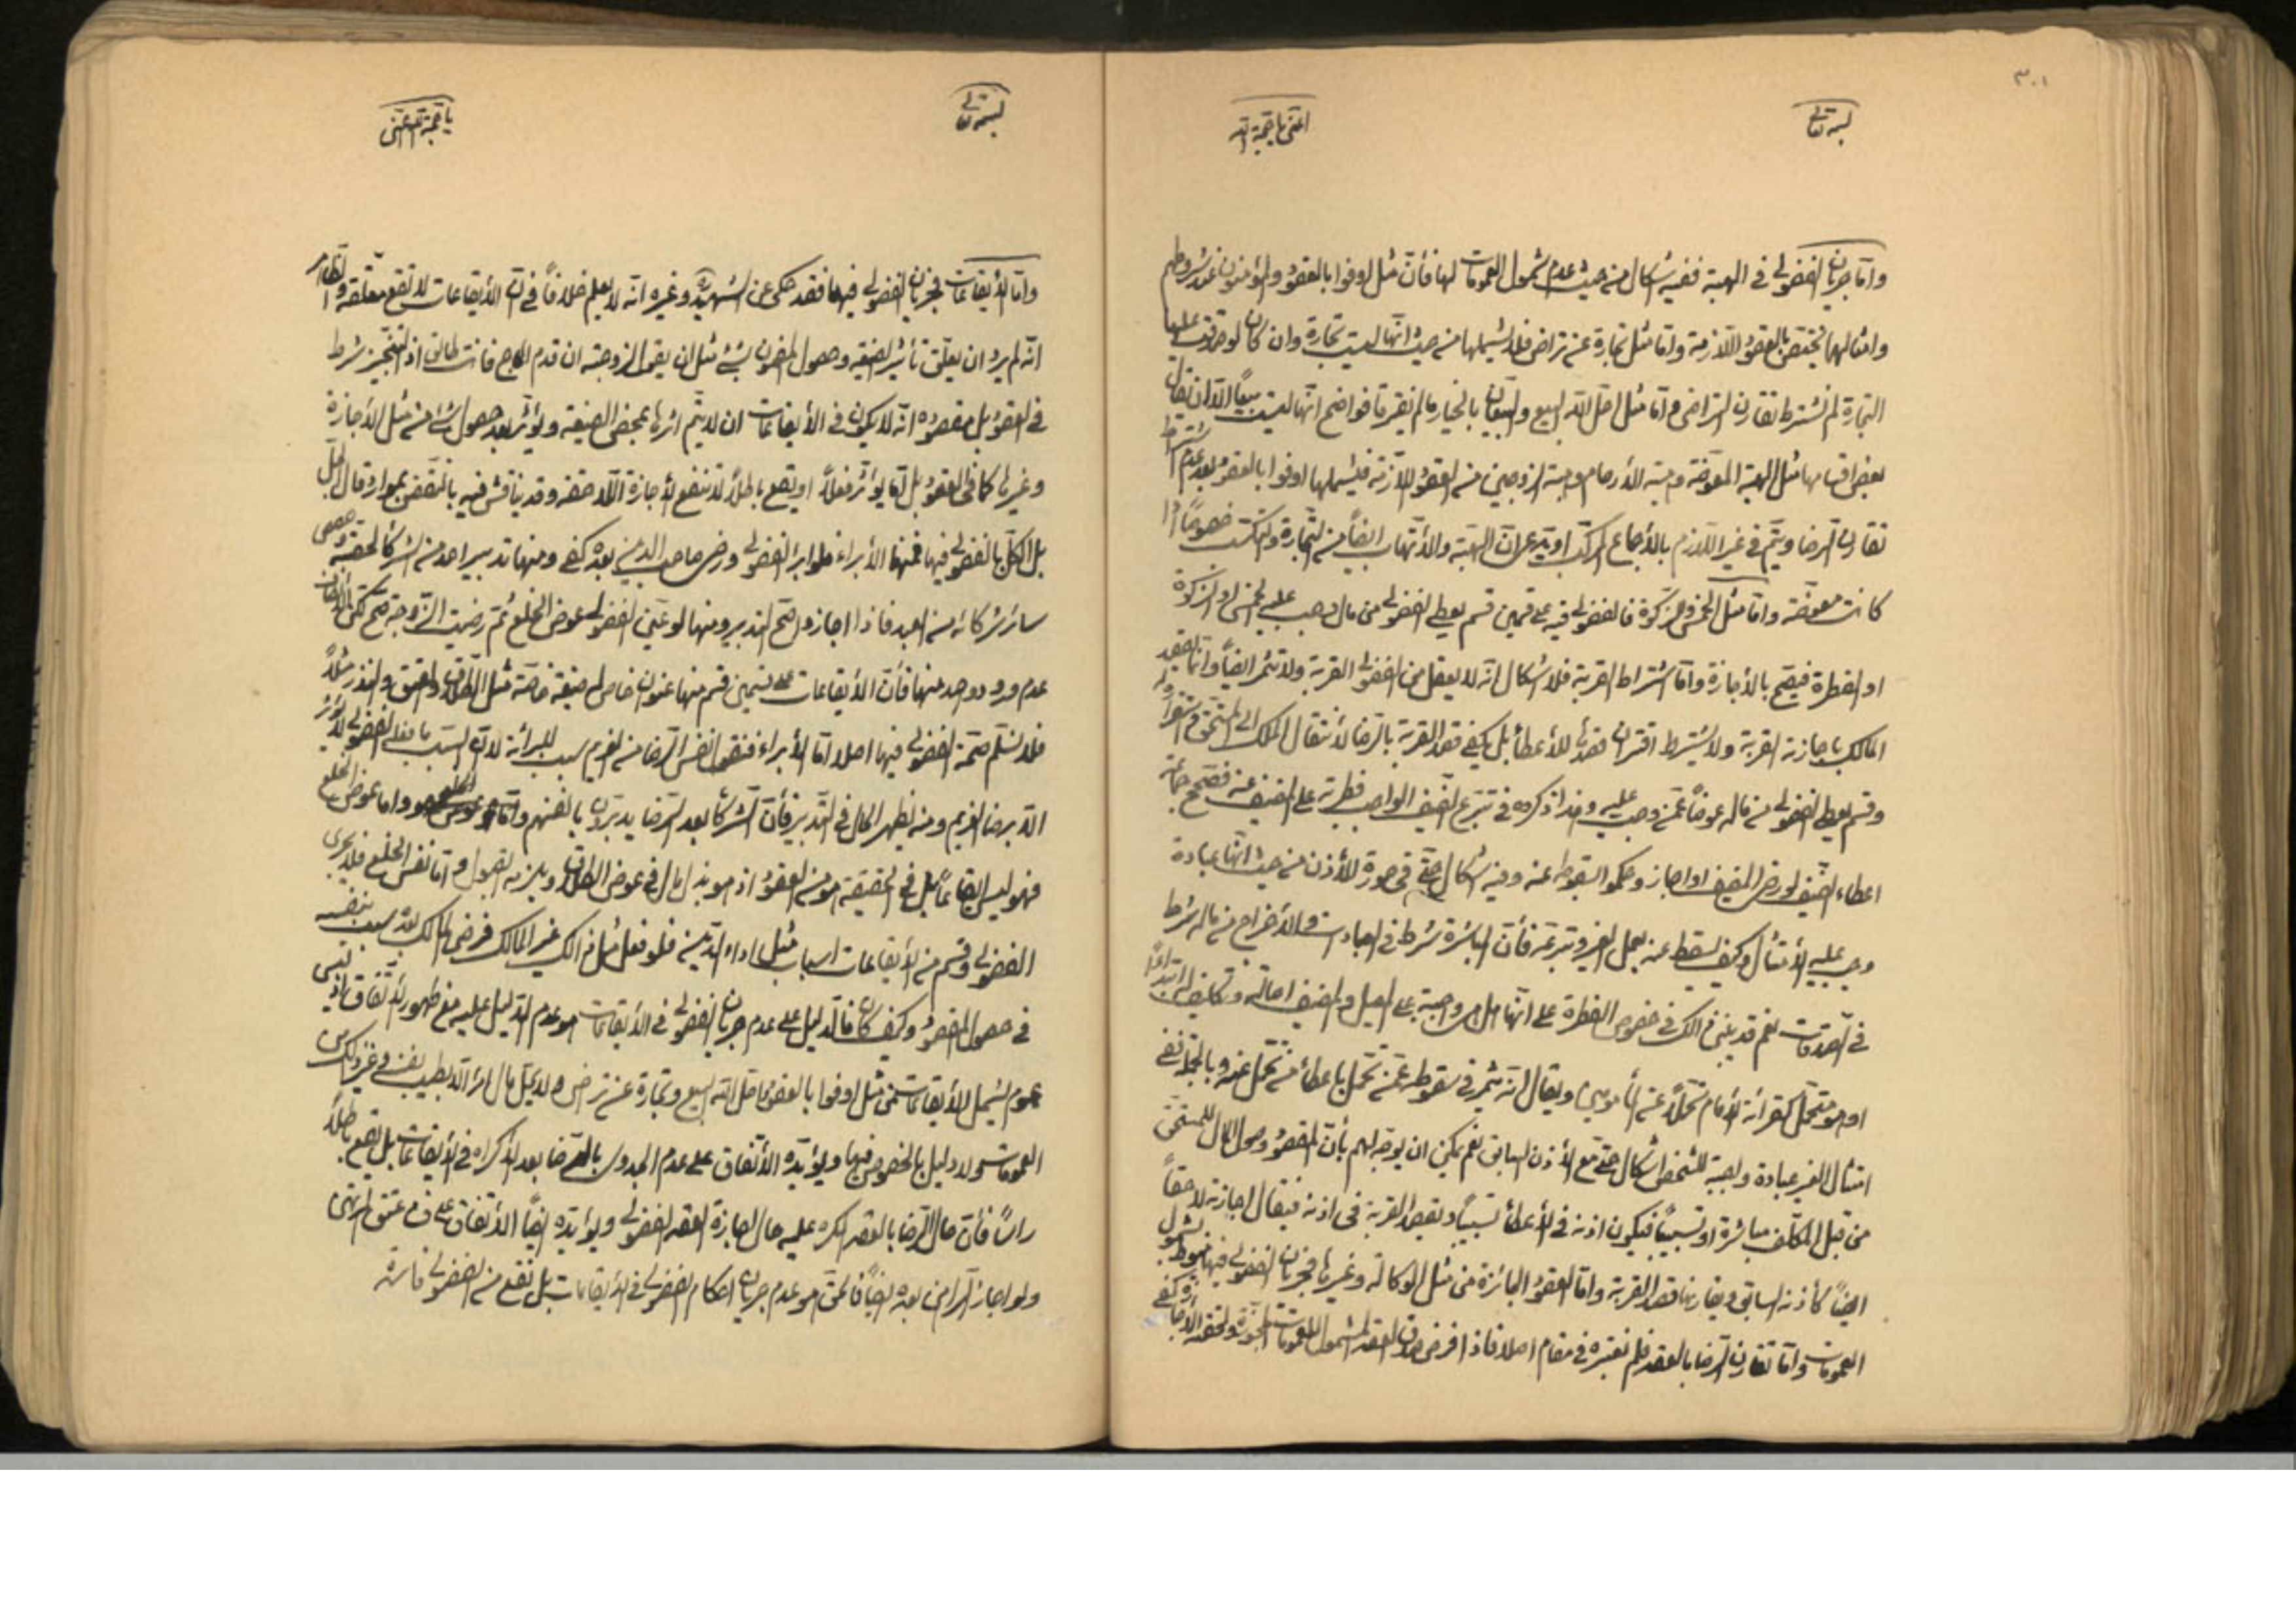 ٣٠١
بسمه تعالى
اغثنى يا حجة الله
واما جريان الفضولى فى الهبة ففيه اشكال من حيث عدم شمول العمومات لها فأن مثل اوفوا بالعقود والمؤمنون عند شروطهم
وامثالهما تختص بالعقود اللازمة واما مثل تجارة عن تراض فلا يشملها من حيث انها ليست تجارة وان كان لو صدقت عليها
التجارة لم نشترط تقارن التراضى واما مثل احل الله البيع والبيعان بالخيار ما لم يفترقا فواضح انها ليست بيعاً الا ان يقال
بعض اقسامها مثل الهبة المعوضة وهبة الأرحام وهبة الزوجين من العقود اللازمة فيشملها اوفوا بالعقود بعد عدم اشتراط
تقارن الرضا ويتم فى غير اللازم بالأجماع المركب او يدعى ان الهبة والأتهاب ايضاً من التجارة والتكسب خصوصاً اذا
كانت معوضة واما مثل الخمس والزكوة فالفضولى فيه على قسمين قسم يعطى الفضولى من مال من وجب عليه الخمس او الزكوة
او الفطرة فيصح بالأجازة واما اشتراط القربة فلا اشكال انه لا يعقل من الفضولى القربة ولا تثمر ايضاً وانما يقصد
المالك باجازته القربة ولا يشترط اقتران قصدها للأعطاء بل يكفى قصد القربة بالرضا لأنتقال الملك الى المستحق
وقسم يعطى الفضولى من ماله عوضاً عمن وجب عليه وقد ذكروه فى تبرع الضيف الواجب فطرته على المضيف عنه فصحح جماعة
اعطاء الضيف لو رضى المضيف او اجاز وحكموا بسقوطه عنه وفيه اشكال حتى فى صورة الأذن من حيث انها عبادة
وجب عليه الأمتثال وكيف يسقط عنه بعمل الغير وتبرعه فأن المباشرة شرط فى العبادات والأخراج من ماله شرط
فى الصدقات نعم قد يبنى ذلك فى خصوص الفطرة على انها هل هى واجبة على المعيل والمضيف اصالة وتكليف له ابتداءً
او هو متحمل كقرائة الأمام تحملاً عن المأمومين ويقال انه يثمر فى سقوطه عمن تحمل باعطاء من تحمل عنه وبالجملة ففى
امتثال الغير عبادة واجبة لشخص اشكال حتى مع الأذن السابق نعم يمكن ان يوجه لهم بأن المقصود وصول المال للمستحق
من قبل المكلف مباشرة او تسبيباً فيكون اذنه فى الأعطاء تسبيباً ويقصد القربة فى اذنه فيقال اجازته لاحقاً
ايضاً كأذنه السابق ويقارنها قصد القربة واما العقود الجائزة من مثل الوكالة وغيرها فجريان الفضولى فيها منوط بشمول
العمومات واما تقارن الرضا بالعقد فلم نعتبره فى مقام اصلا فاذا فرض صدق العقد المشمول للعمومات المجوزة ولحقه الأجازة كفى
بسمه تعالى
يا حجة الله اغثنى
واما الأيقاعات فجريان الفضولى فيها فقد حكى عن الشهيد وغيره انه لا يعلم خلافاً فى ان الأيقاعات لا تقع معلقة والظاهر
انه لم يرد ان يعلق تأثير الصيغة وحصول المضمون بشئ مثل ان يقول لزوجته ان قدم الحاج فانت طالق اذ التنجيز شرط
فى العقود بل مقصوده انه لا يكون فى الأيقاعات ان لا يتم اثرها بمحض الصيغة ويؤثر بعد حصول شئ من مثل الأجازة
وغيرها كما فى العقود بل اما يؤثر فعلاً او يقع باطلاً لا تنفع الأجازة اللاحقة وقد يناقش فيه بالنقض بموارد قال الجل
بل الكل بالفضولى فيها فمنها الأبراء فلو ابرء الفضولى ورضى صاحب الدين بعده كفى ومنها تدبير احد من الشركاء لحصته وحصص
سائر شركائه من العبد فاذا اجازوا صح التدبير ومنها لو عين الفضولى عوض الخلع ثم رضيت الزوجة صح لكن الأنصاف
عدم ورود واحد منها فأن الأيقاعات على قسمين قسم منها عنوان خاص له صيغة خاصة مثل الطلاق والعتق والنذر مثلاً
فلا نسلم صحة الفضولى فيها اصلا اما الأبراء فنقول نفس الرضا من الغريم سبب للبرائة لا ان السبب ما فعله الفضولى لا يؤثر
الا برضا الغريم ومنه يظهر الحال فى التدبير فأن الشركاء بعد الرضا يدبرون بانفسهم واما عوض الخلع
فهو ليس ايقاعاً بل فى الحقيقة هو من العقود اذ هو بذل المال فى عوض الطلاق ويلزمه القبول واما نفس الخلع فلا يجرى
الفضولى وقسم من الأيقاعات اسباب مثل اداء الدين فلو فعل مثل ذلك غير المالك فرضى المالك بعد سبب بنفسه
فى حصول المقصود وكيف كان فالدليل على عدم جريان الفضولى فى الأيقاعات هو عدم الدليل عليه مع ظهور الأتفاق اذ ليس
عموم يشمل الأيقاعات من مثل اوفوا بالعقود واحل الله البيع وتجارة عن تراض ولا يحل مال امرء الا بطيب نفسه وغير ذلك من
العمومات ولا دليل بالخصوص فيها ويؤيده الأتفاق على عدم الجدوى بالرضا بعد الأكراه فى الأيقاعات بل يقع باطلاً
رأساً فأن حال الرضا بالعقد المكره عليه حال اجازة العقد الفضولى ويؤيده ايضاً الأتفاق على فساد عتق المرتهن
ولو اجاز الراهن بعده ايضاً فالحق هو عدم جريان احكام الفضولى فى الأيقاعات بل تقع من الفضولى فاسدة